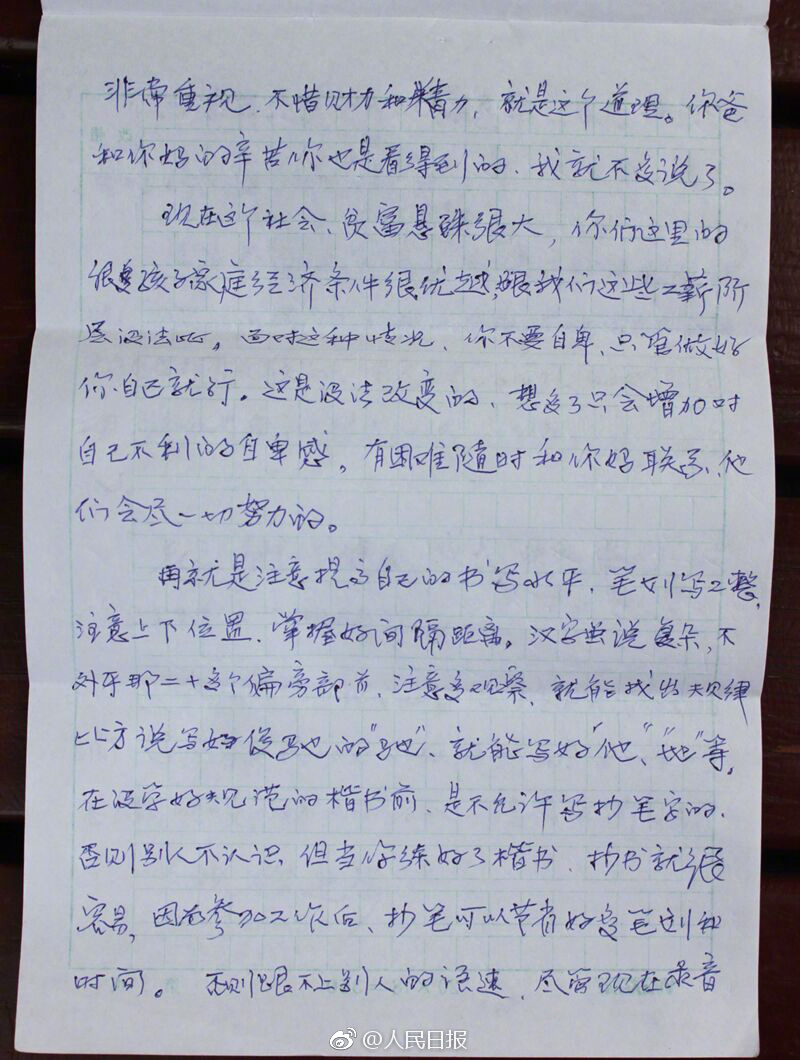 非常重视、不惜财力和精力，就是这个道理。你爸
和你妈的辛苦你也是看得到的、我就不多说了。
现在这个社会、贫富悬殊很大，你们这里的
很多孩子家庭经济条件很优越，跟我们这些工薪阶
层没法比。面对这种情况、你不要自卑、只管做好
你自己就行。这是没法改变的、想多了只会增加对
自己不利的自卑感。有困难随时和你妈联系、他
们会尽一切努力的。
再就是注意提高自己的书写水平、笔划写工整，
注意上下位置、掌握好间隔距离。汉字虽说复杂，不
外乎那二十多个偏旁部首、注意多观察、就能找出规律
比方说写好侵马也的“驰”、就能写好“他”、“地”等。
在没学好规范的楷书前、是不允许写抄笔字的、
否则别人不认识 但当你练好了楷书、抄书就很
容易，因为参加工作后、抄笔可以节省好多笔划和
时间。 否则跟不上别人的语速、尽管现在录音
@人民日报